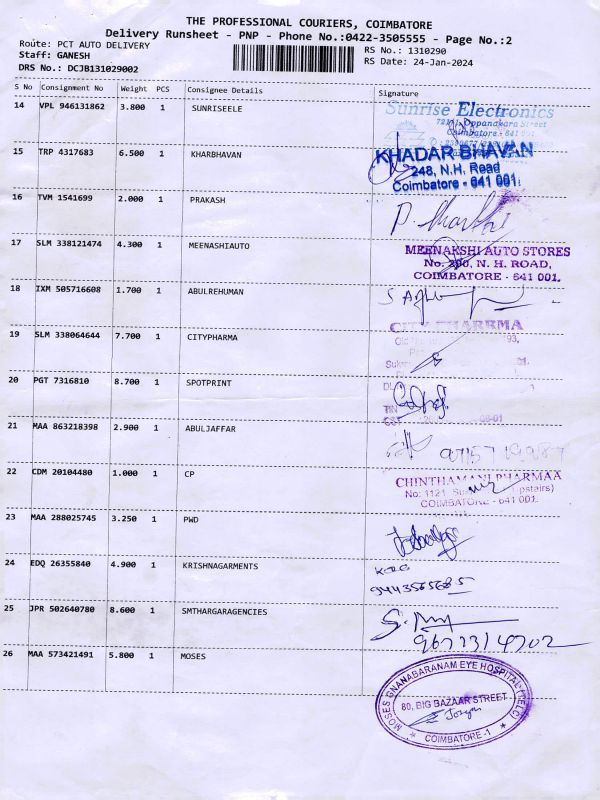 THE PROFESSIONAL COURIERS, COIMBATORE
Delivery Runsheet - PNP - Phone No.:0422-3505555 - Page No.:2
Route: PCT AUTO DELIVERY
RS No.: 1310290
Staff: GANESH
RS Date: 24-Jan-2024
DRS No.: DCJB131029002
S No Consignment No Weight PCS Consignee Details Signature
14 VPL 946131862 3.800 1 SUNRISEELE
Sunrise Electronics
Oppanakara Street
Coimbatore - 641 001
15 TRP 4317683 6.500 1 KHARBHAVAN
KHADAR BHAVAN
248, N.H. Road
Coimbatore - 641 001
16 TVM 1541699 2.000 1 PRAKASH
17 SLM 338121474 4.300 1 MEENASHIAUTO
MEENAKSHI AUTO STORES
N. H. ROAD,
COIMBATORE - 641 001.
18 IXM 505716608 1.700 1 ABULREHUMAN
19 SLM 338064644 7.700 1 CITYPHARMA
CITY PHARRMA
20 PGT 7316810 8.700 1 SPOTPRINT
21 MAA 863218398 2.900 1 ABULJAFFAR
22 CDM 20104480 1.000 1 CP
CHINTHAMANI PHARMAA
No: 1121 pstairs)
COIMBATORE - 641 001.
23 MAA 288025745 3.250 1 PWD
24 EDQ 26355840 4.900 1 KRISHNAGARMENTS
25 JPR 502640780 8.600 1 SMTHARGARAGENCIES
26 MAA 573421491 5.800 1 MOSES
MOSES GNANABARANAM EYE HOSPITAL (TELC)
80, BIG BAZAAR STREET
COIMBATORE-1